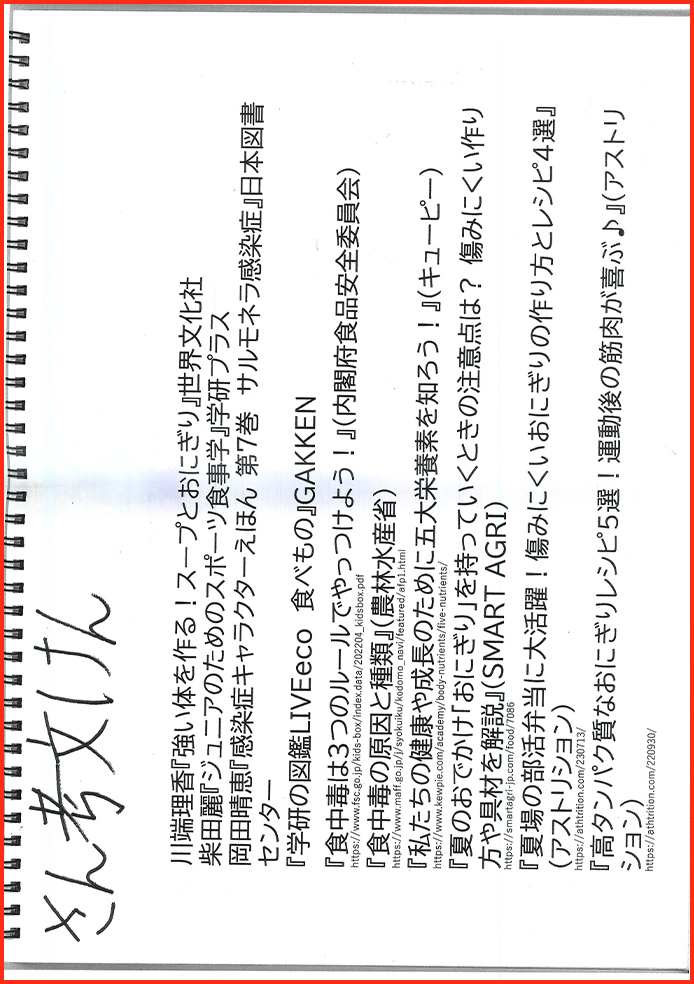 さん考文けん
川端理香『強い体を作る！スープとおにぎり』世界文化社
柴田麗『ジュニアのためのスポーツ食事学』学研プラス
岡田晴恵『感染症キャラクターえほん 第7巻　サルモネラ感染症』日本図書
センター
『学研の図鑑LIVEeco　食べもの』GAKKEN
『食中毒は3つのルールでやっつけよう！』(内閣府食品安全委員会)
https://www.fsc.go.jp/kids-box/index.data/202204_kidsbox.pdf
『食中毒の原因と種類』(農林水産省)
https://www.maff.go.jp/j/syokuiku/kodomo_navi/featured/afp1.html
『私たちの健康や成長のために五大栄養素を知ろう！』(キューピー)
https://www.kewpie.com/academy/body-nutrients/five-nutrients/
『夏のおでかけ「おにぎり」を持っていくときの注意点は？ 傷みにくい作り
方や具材を解説』(SMART AGRI)
https://smartagri-jp.com/food/7086
『夏場の部活弁当に大活躍！傷みにくいおにぎりの作り方とレシピ4選』
(アストリション)
https://athtrition.com/230713/
『高タンパク質なおにぎりレシピ5選！運動後の筋肉が喜ぶ♪』(アストリ
ション)
https://athtrition.com/220930/